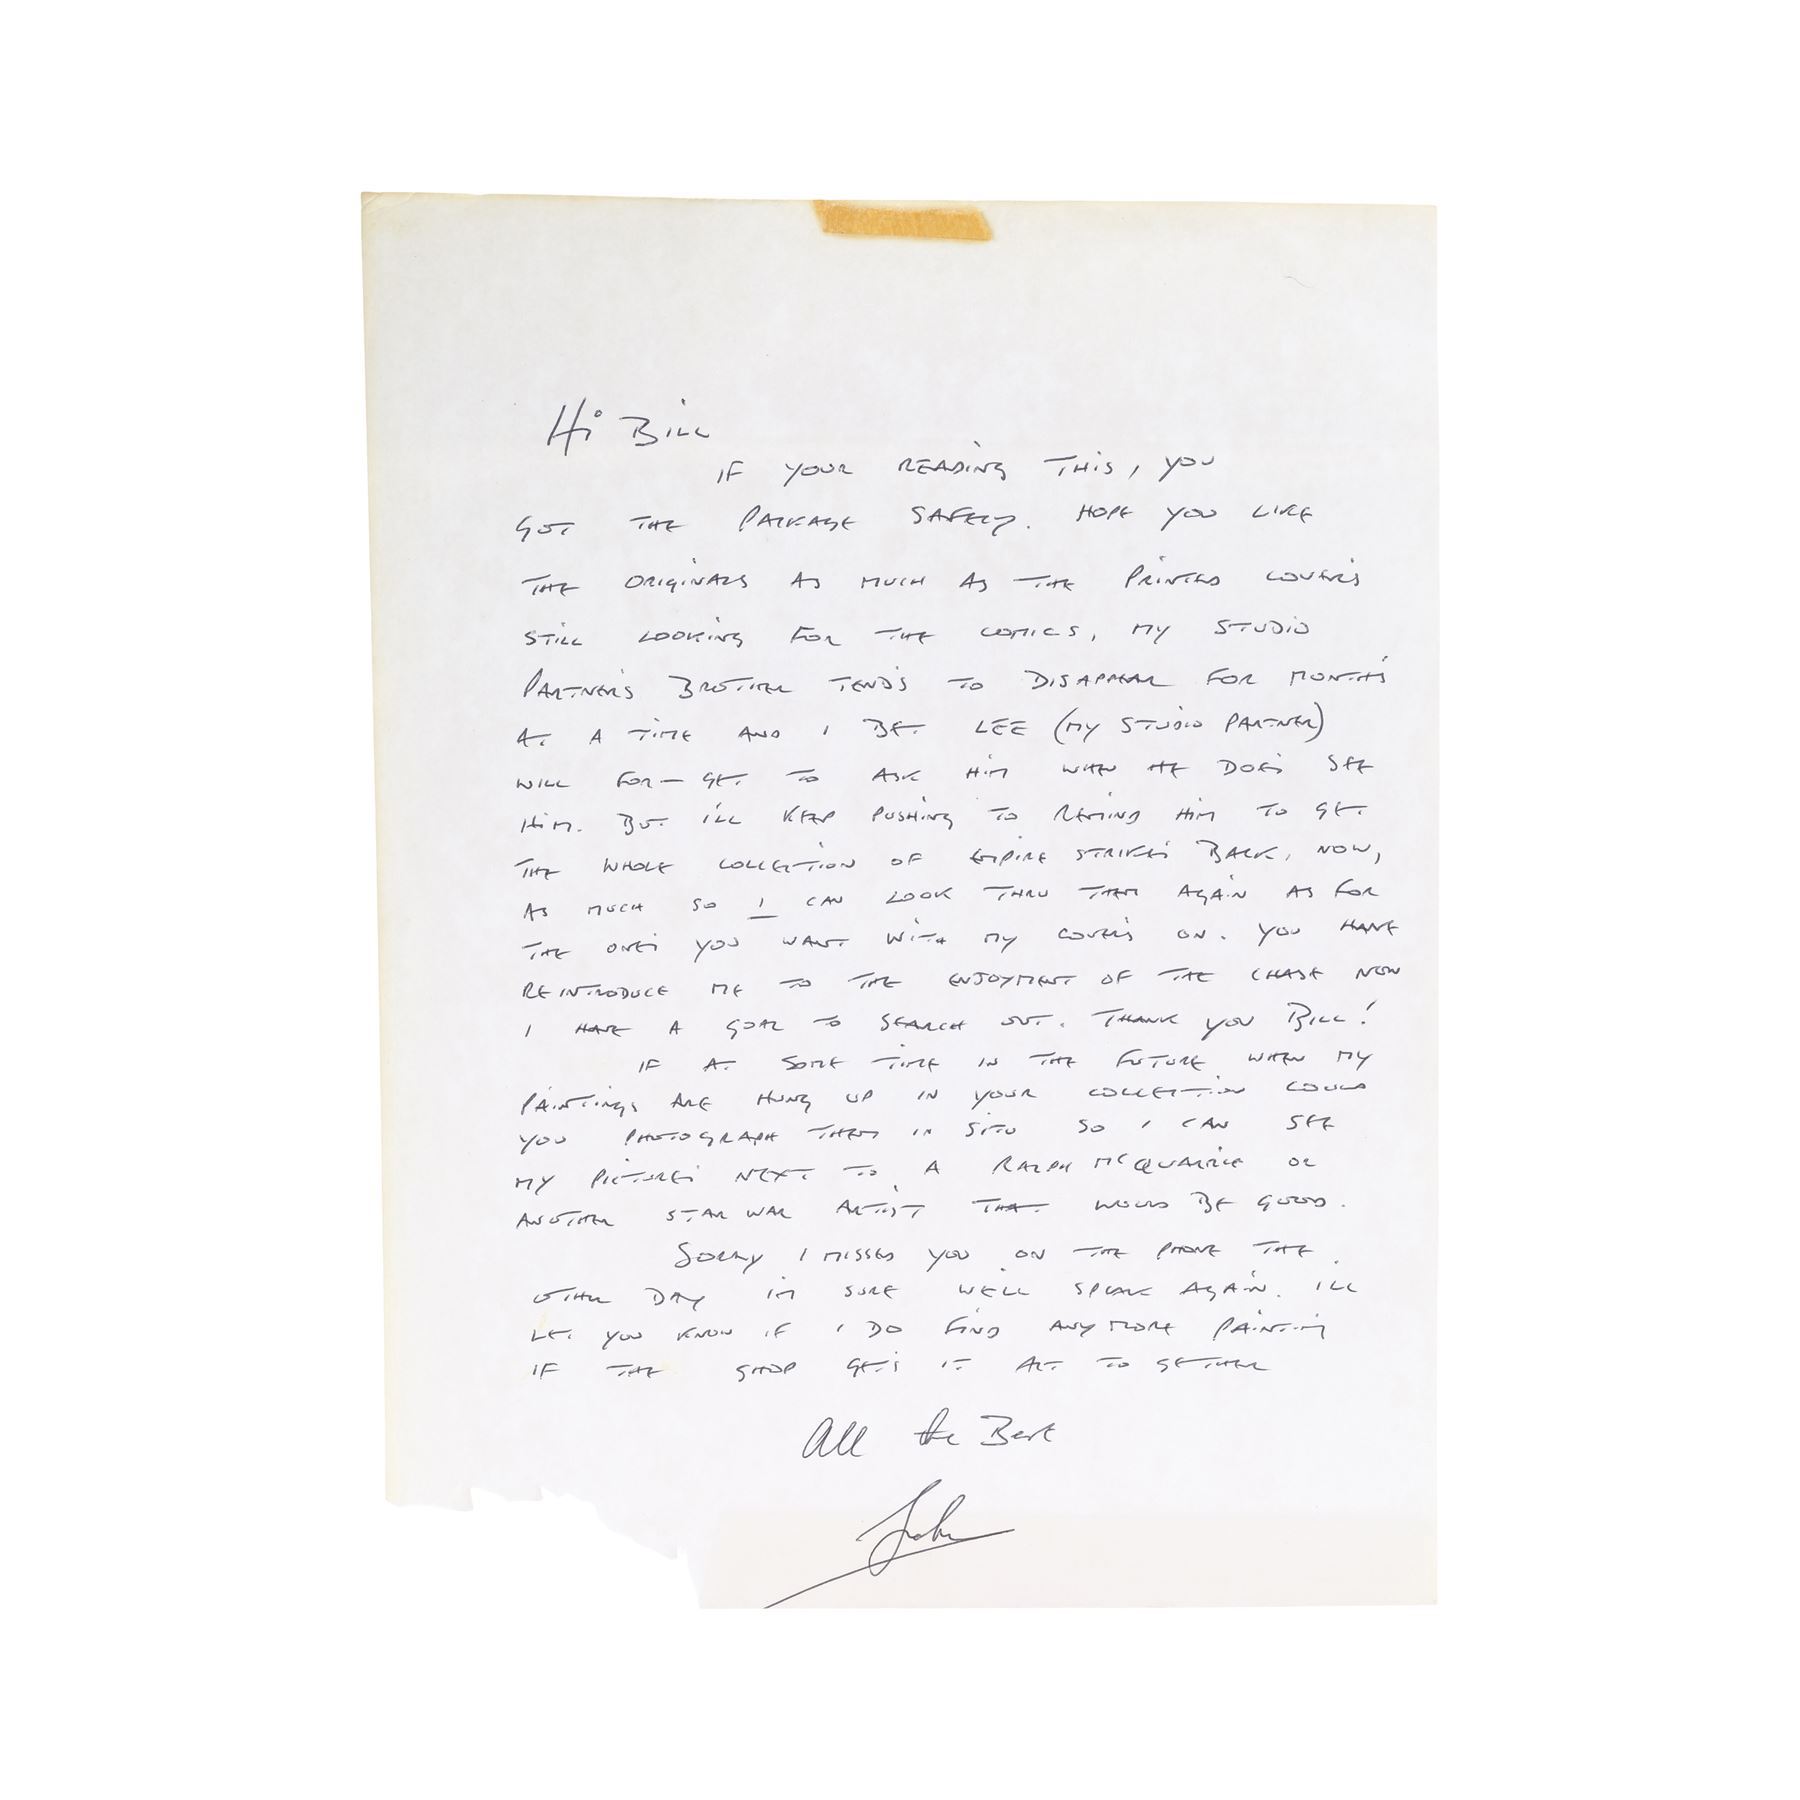 Hi BILL
IF YOUR READING THIS, YOU
GOT THE PACKAGE SAFELY. HOPE YOU LIKE
THE ORIGINALS AS MUCH AS THE PRINTED COVER'S
STILL LOOKING FOR THE COMICS, MY STUDIO
PARTNER'S BROTHER TEND'S TO DISAPPEAR FOR MONTH'S
AT A TIME AND I BET LEE (MY STUDIO PARTNER)
WILL FOR-GET TO ASK HIM WHEN HE DOES SEE
HIM. BUT I'LL KEEP PUSHING TO REMIND HIM TO GET
THE WHOLE COLLECTION OF EMPIRE STRIKES BACK, NOW,
AS MUCH SO I CAN LOOK THRU THEM AGAIN AS FOR
THE ONE'S YOU WANT WITH MY COVER'S ON. YOU HAVE
REINTRODUCE ME TO THE ENJOYMENT OF THE CHASE NOW
I HAVE A GOAL TO SEARCH OUT. THANK YOU BILL!
IF AT SOME TIME IN THE FUTURE WHEN MY
PAINTINGS ARE HUNG UP IN YOUR COLLECTION COULD
YOU PHOTOGRAPH THEM IN SITU SO I CAN SEE
MY PICTURE'S NEXT TO A RALPH McQUARRIE OR
ANOTHER STAR WAR ARTIST THAT WOULD BE GOOD.
SORRY I MISSED YOU ON THE PHONE THE
OTHER DAY IM SURE WE'LL SPEAK AGAIN. I'LL
LET YOU KNOW IF I DO FIND ANYMORE PAINTIN
IF THE SHOP GETS IT ART TO GETHER
All the Best
John